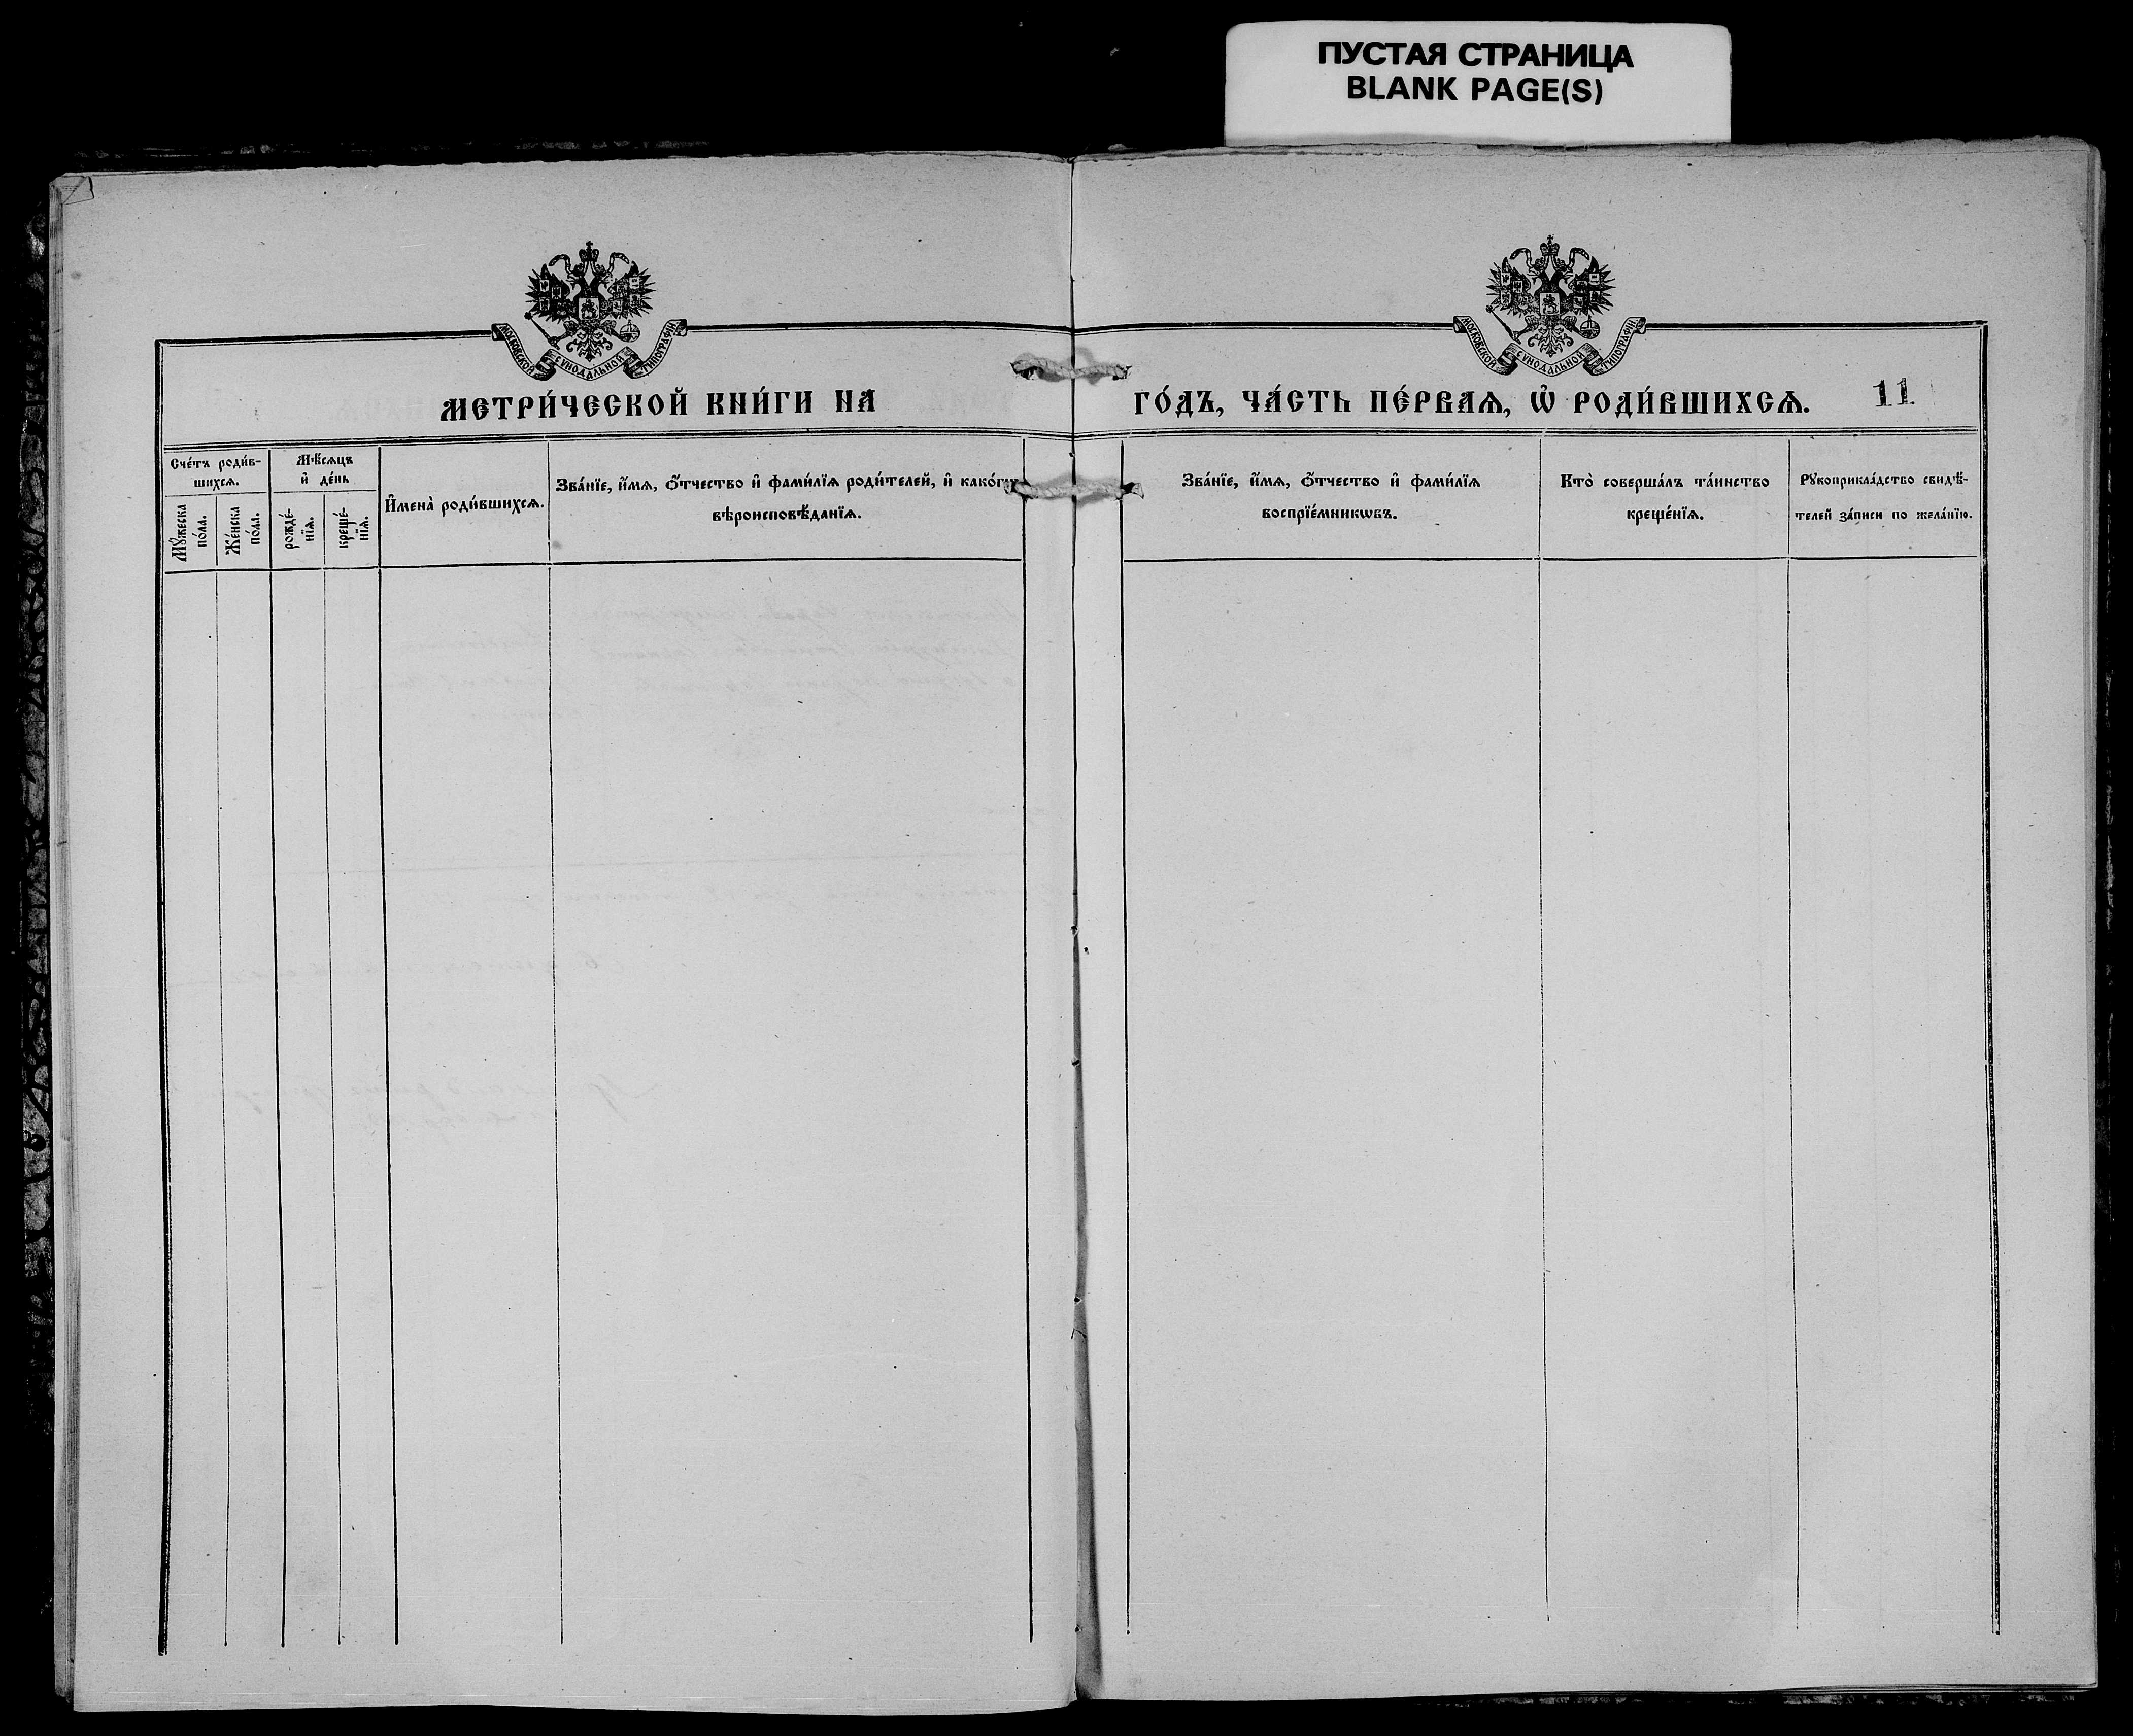 ПУСТАЯ СТРАНИЦА
BLANK PAGE(S)
МОСКОВСКОЙ СѴНОДАЛЬНОЙ ТИПОГРАФІИ
МОСКОВСКОЙ СѴНОДАЛЬНОЙ ТИПОГРАФІИ
МЕТРИ́ЧЕСКОЙ КНИ́ГИ НА
ГО́ДЪ, ЧА́СТЬ ПЕ́РВАѦ, Ѡ҆ РОДИ́ВШИХСѦ.
11
Сче́тъ роди́в-
шихсѧ.
Мꙋ́жеска
по́ла.
Же́нска
по́ла.
Мѣ́сѧцъ
и҆ де́нь
рожде́-
нїѧ.
креще́-
нїѧ.
И҆мена̀ роди́вшихсѧ.
Зва́нїе, и҆́мѧ, ѻ҆́тчество и҆ фами́лїѧ роди́телей, и҆ како́гѡ
вѣроисповѣ́данїѧ.
Зва́нїе, и҆́мѧ, ѻ҆́тчество и҆ фами́лїѧ
воспрїе́мникѡвъ.
Кто̀ соверша́лъ та́инство
креще́нїѧ.
Рꙋкоприкла́дство свидѣ́-
телей за́писи по жела́нїю.